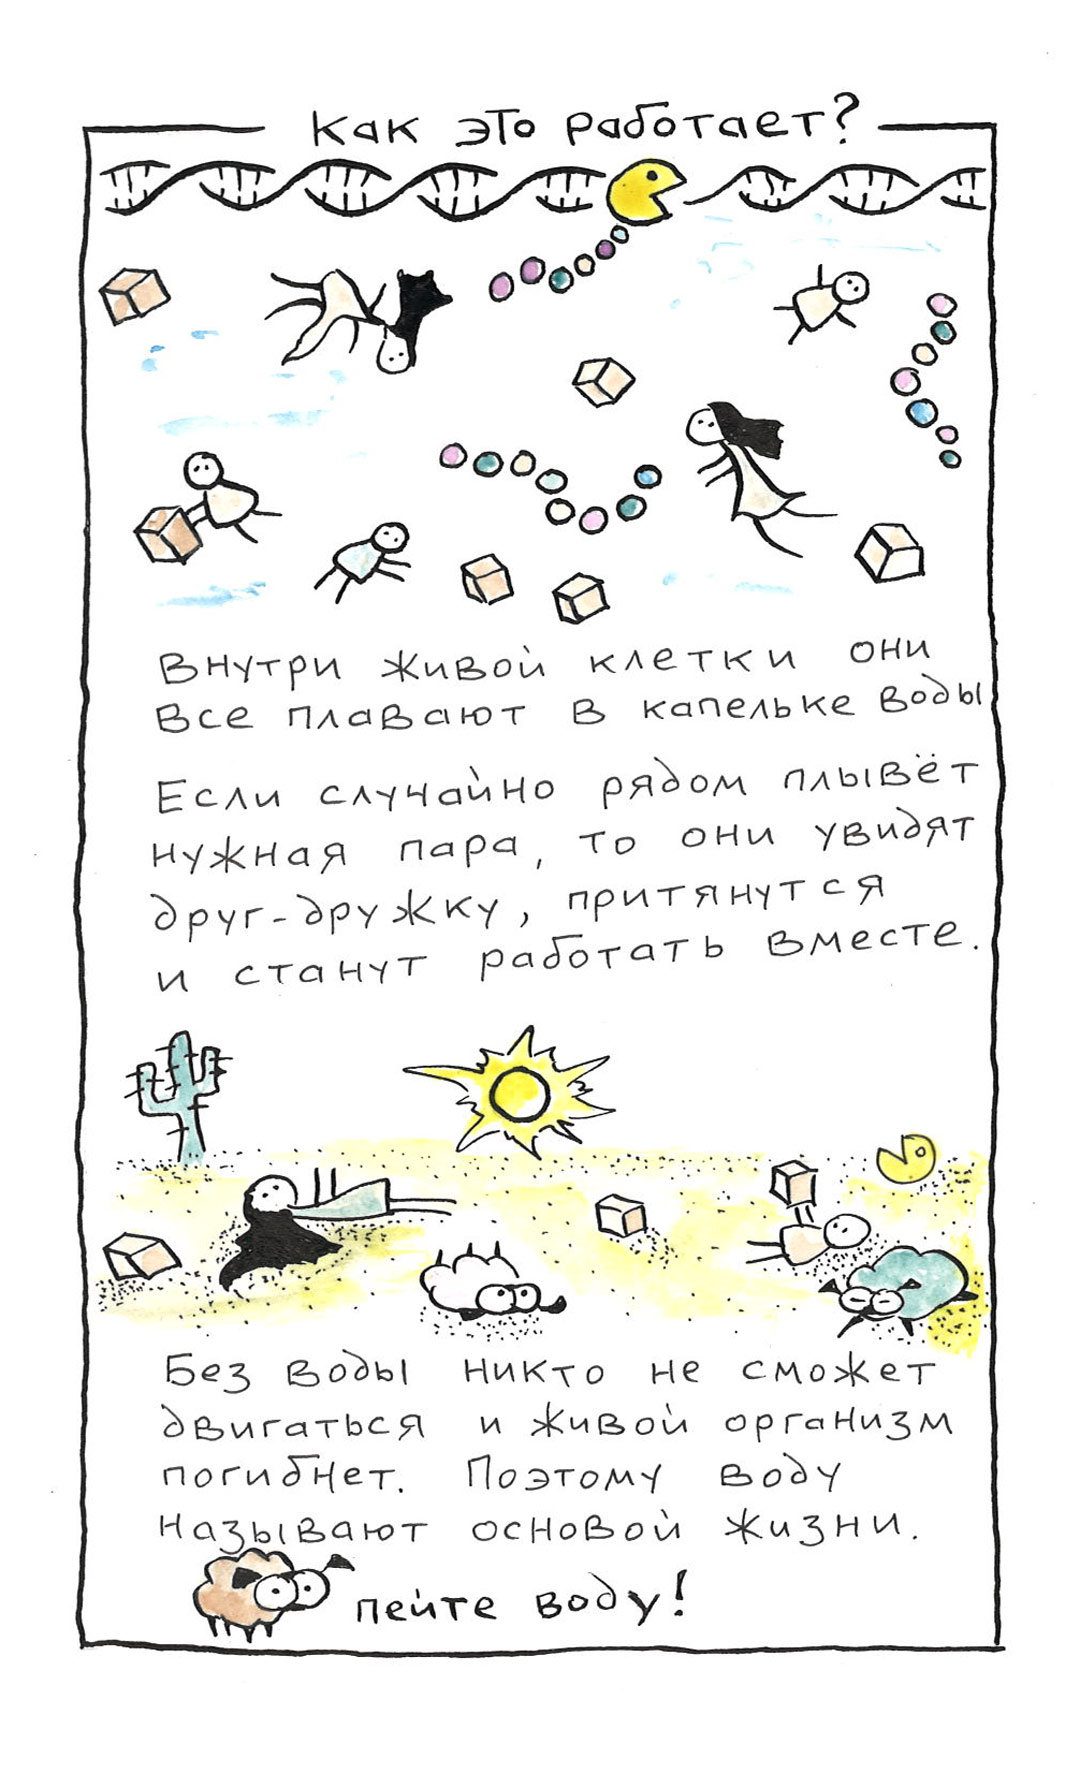 Как это работает?
Внутри живой клетки они
все плавают в капельке воды
Если случайно рядом плывёт
нужная пара, то они увидят
друг-дружку, притянутся
и станут работать вместе.
Без воды никто не сможет
двигаться и живой организм
погибнет. Поэтому воду
называют основой жизни.
пейте воду!